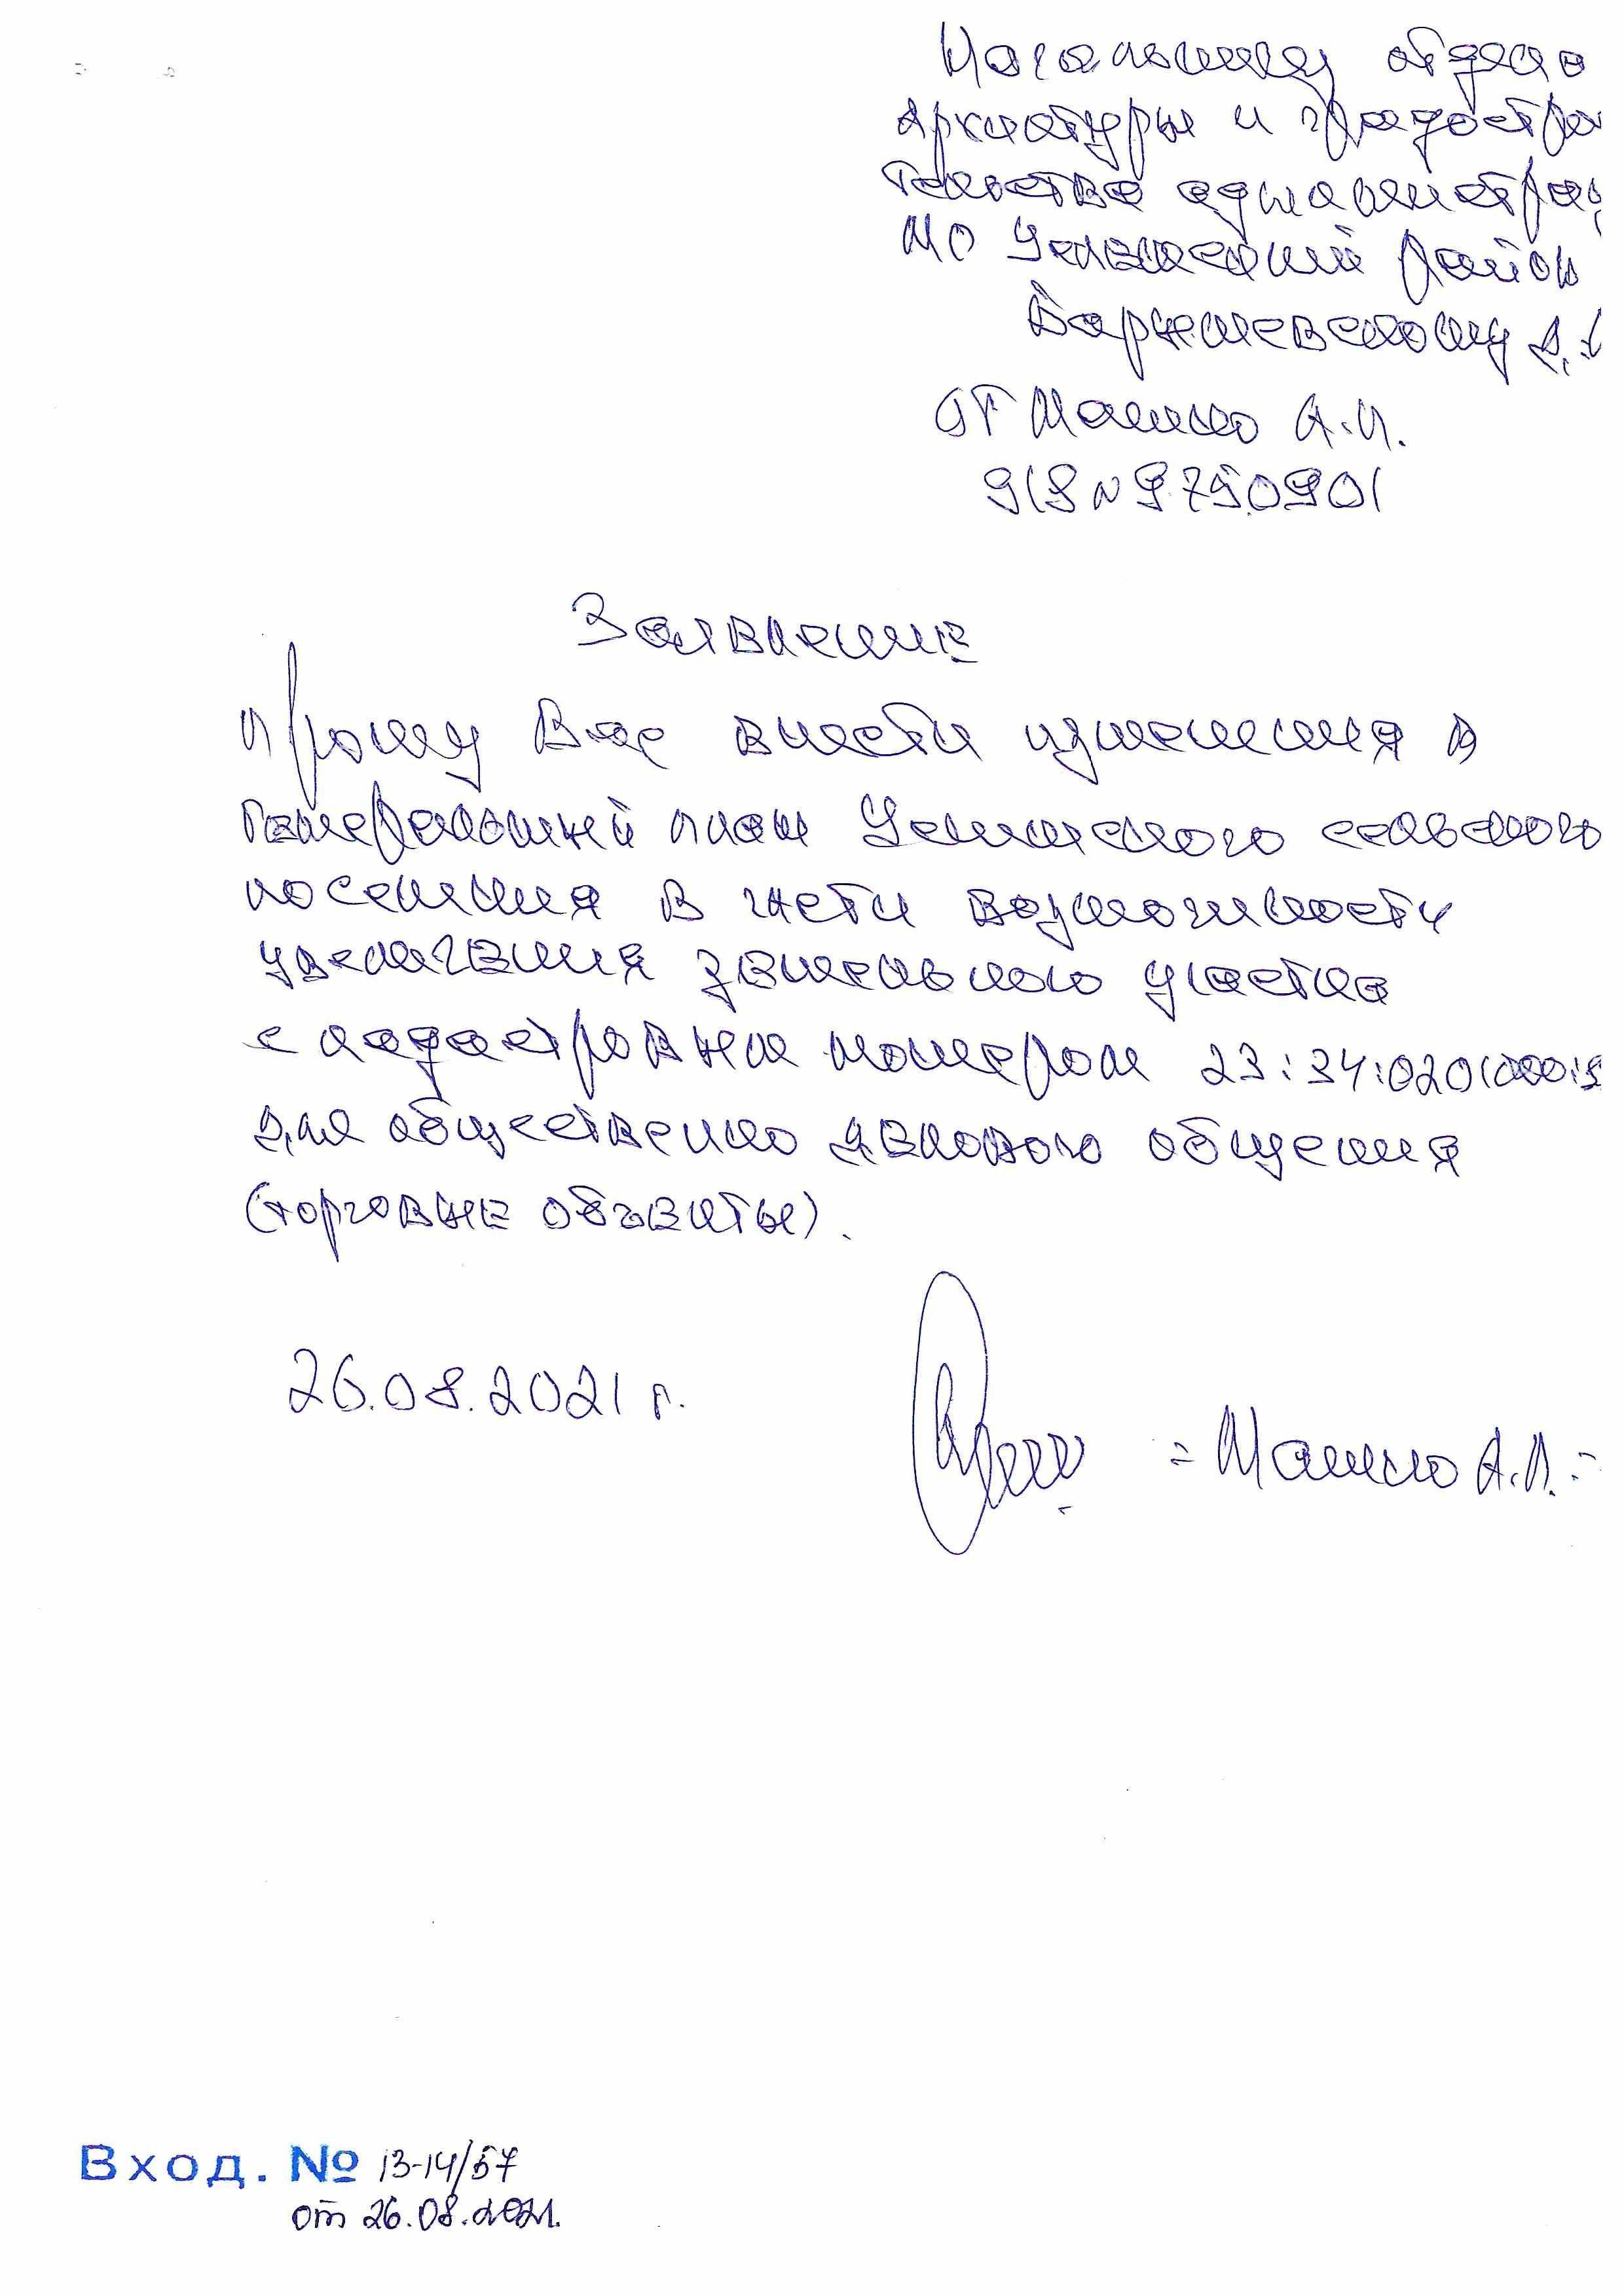 Начальнику отдела
архиатуры и градострои
тельства администрац
МО Успенский район
Барышевскому Д.
от Машко А.П.
918
Заявление
прошу Вас внести изменения в
Генеральный план Успенского сельского
поселения в части возможности
увеличения земельного участка
с кадастровым номером 23:34:0201000:
для общественно делового общения
(торговые объекты).
26.08.2021 г.
= Машко А.П. =
Вход. № 13-14/57
от 26.08.2021.